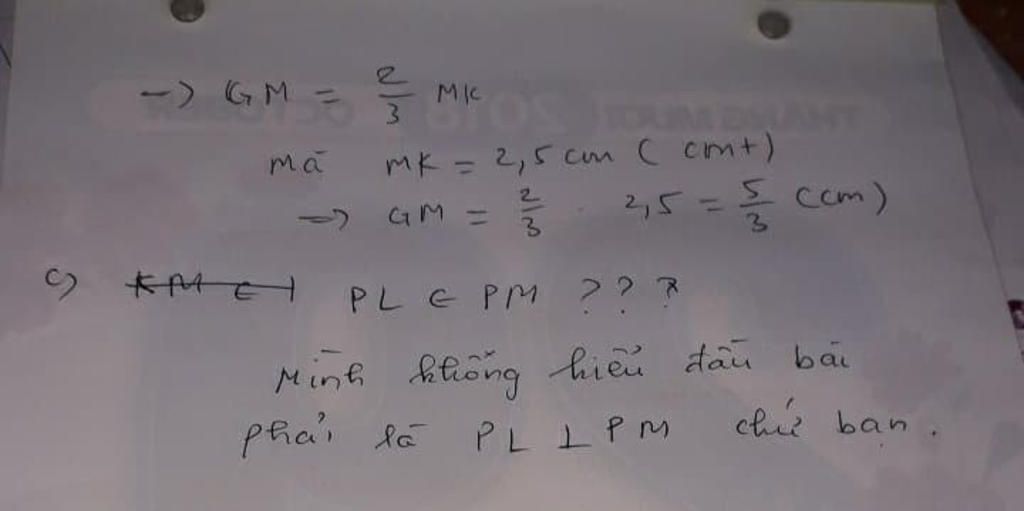 → GM = 2/3 MK
mà MK = 2,5 cm ( cmt)
→ GM = 2/3 . 2,5 = 5/3 (cm)
c) PL ∈ PM ???
Mình không hiểu đầu bài
phải là PL ⊥ PM chứ bạn.